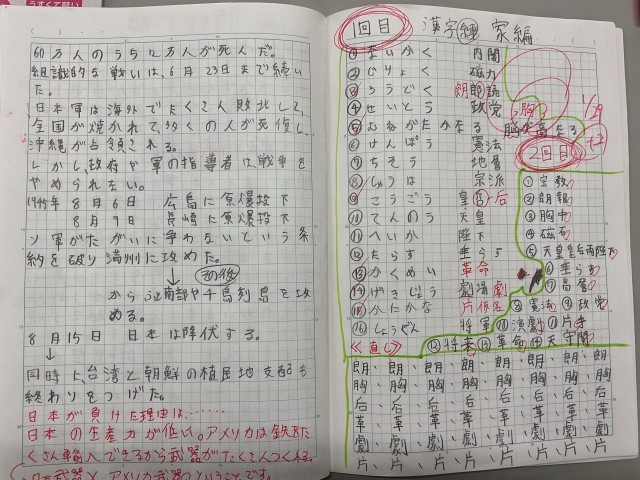 60万人のうち12万人が死んだ。
組識的な戦いは、6月23日まで続い
た。
日本軍は海外でたくさん敗北して、
全国が焼かれて、多くの人が死傷し、
沖縄が占領される。
しかし、政府や軍の指導者は、戦争を
やめられない。
1945年8月6日 広島に原爆投下
8月9日 長崎に原爆投下
ソ軍がたがいに争わないという条
約を破り満州に攻めた。
その後
から
南部や千島列島を攻
める。
8月15日 日本は降伏する。
↓
同時に、台湾と朝鮮の植民地支配も
終わりをつげた。
日本が負けた理由は、……
日本の生産力が低い。アメリカは鉄をた
くさん輸入できるから武器がたくさんつくれる。
1回目 漢字練 家編
①ないかく 内閣
②じりょく 磁力
③ろうどく 朗朗読
④せいとう 政党
⑤むねがたかなる 胸が高なる
⑥けんぽう 憲法
⑦ちそう 地層
⑧しゅうは 宗派
⑨こうごう 皇后
⑩てんのう 天皇
⑪へいか 陛下
⑫たらす 垂らす
⑬かくめい 革命
⑭げきじょう 劇場劇
⑮かたかな 片仮名
⑯しょうぐん 将軍
胸
1/29
2回目
①宗教
②朗報
③胸中
④磁石
⑤天皇皇后両陛下
⑥垂らす
⑦高層
⑧憲法 ⑨政党
⑩演劇 ⑪片手
⑫将来 ⑬革命 ⑭天守閣
≪直し≫
朗、朗、朗、朗、朗、朗、朗
胸、胸、胸、胸、胸、胸、胸
后、后、后、后、后、后、后
革、革、革、革、革、革、革
劇、劇、劇、劇、劇、劇、劇
片、片、片、片、片、片、片